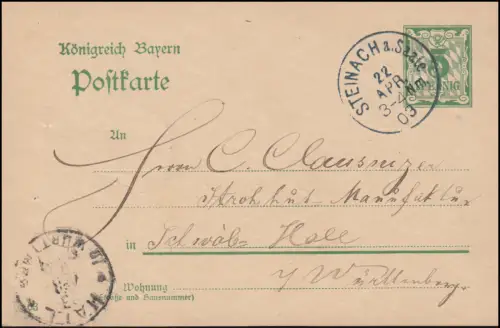 Königreich Bayern
Postkarte
STEINACH a. Saale
22
APR
3-4 Nm
03
5
PFENNIG
An
Herrn C. Clausnizer
Strohhut Manufaktur
in Schwäb. Hall
Württemberg
Wohnung
(Straße und Hausnummer)
HALL
WÜRTT